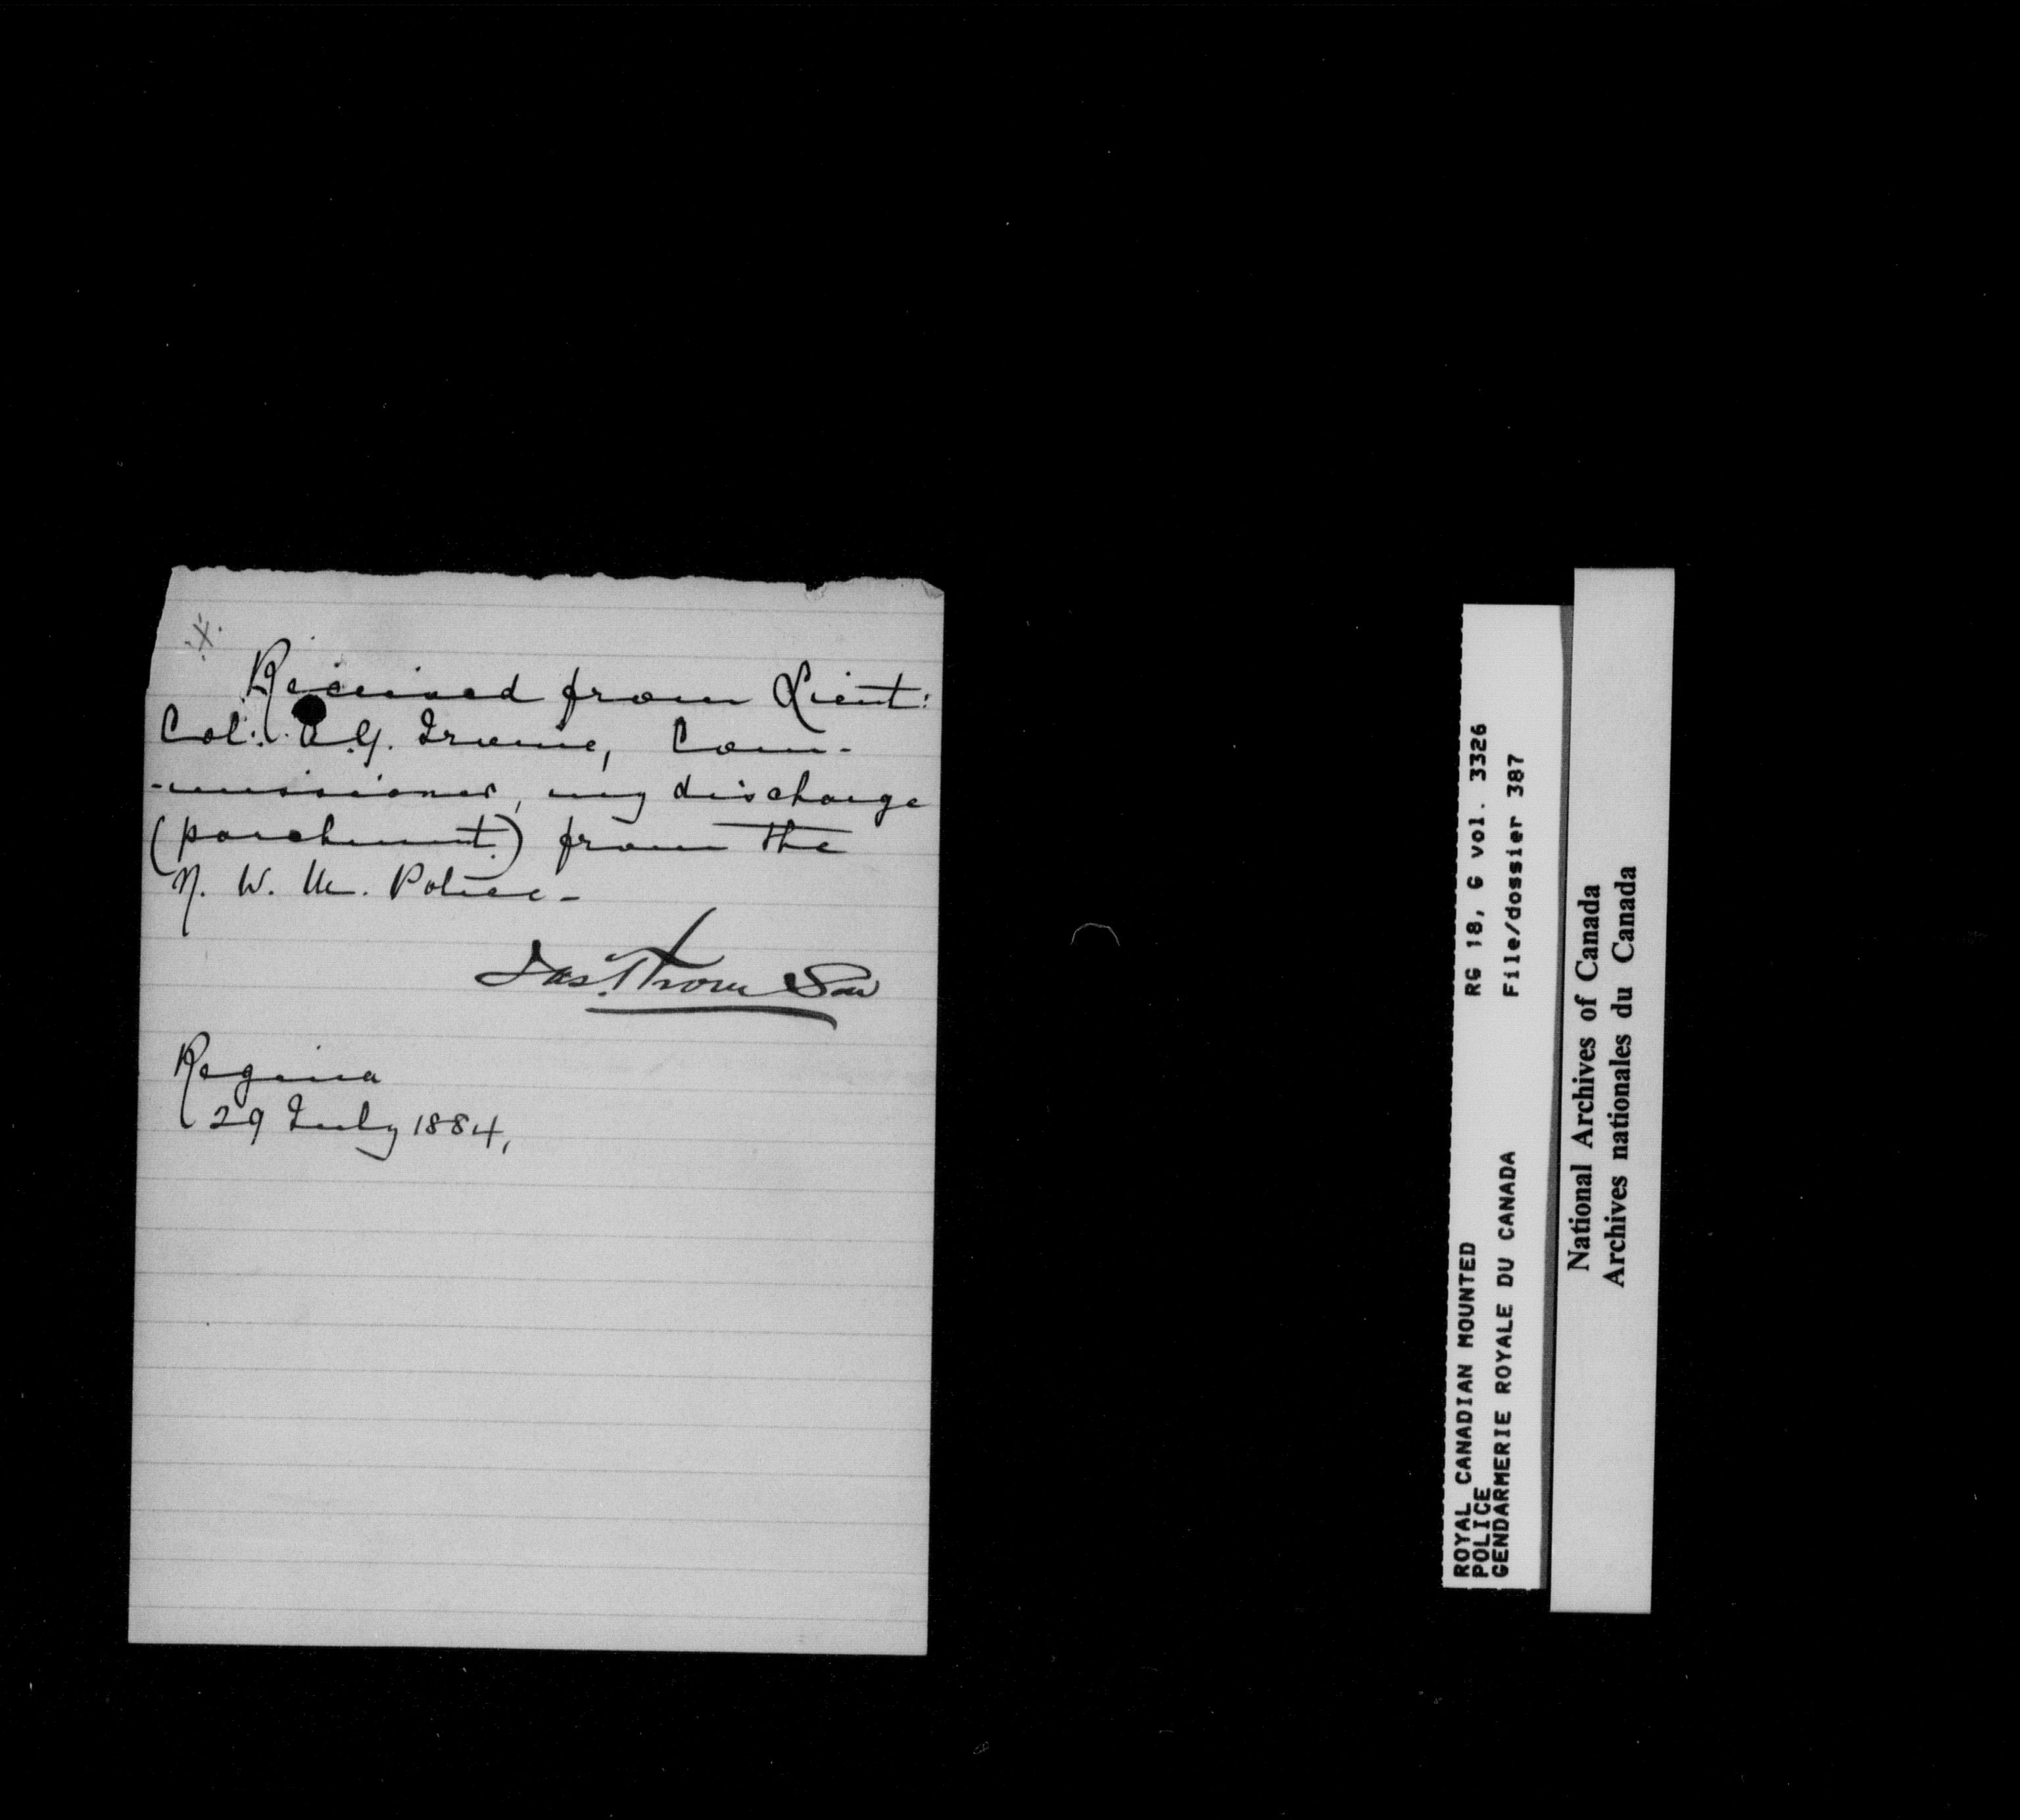 Received from Lieut:
Col: A.G. Irvine, Com-
-missioner, my discharge
(parchment) from the
N. W. M. Police -
Jas. Thomson
Regina
29 July 1884,
ROYAL CANADIAN MOUNTED RG 18, G vol. 3326
POLICE
GENDARMERIE ROYALE DU CANADA File/dossier 387
National Archives of Canada
Archives nationales du Canada